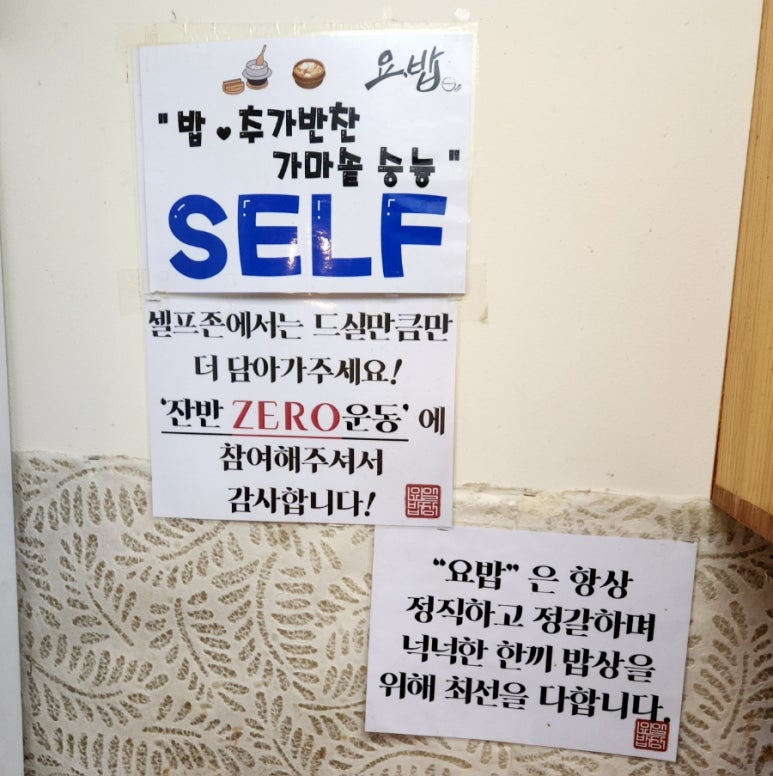 요.밥
"밥 ♥ 추가반찬
가마솥 숭늉"
SELF
셀프존에서는 드실만큼만
더 담아가주세요!
'잔반 ZERO운동' 에
참여해주셔서
감사합니다!
"요밥" 은 항상
정직하고 정갈하며
넉넉한 한끼 밥상을
위해 최선을 다합니다.